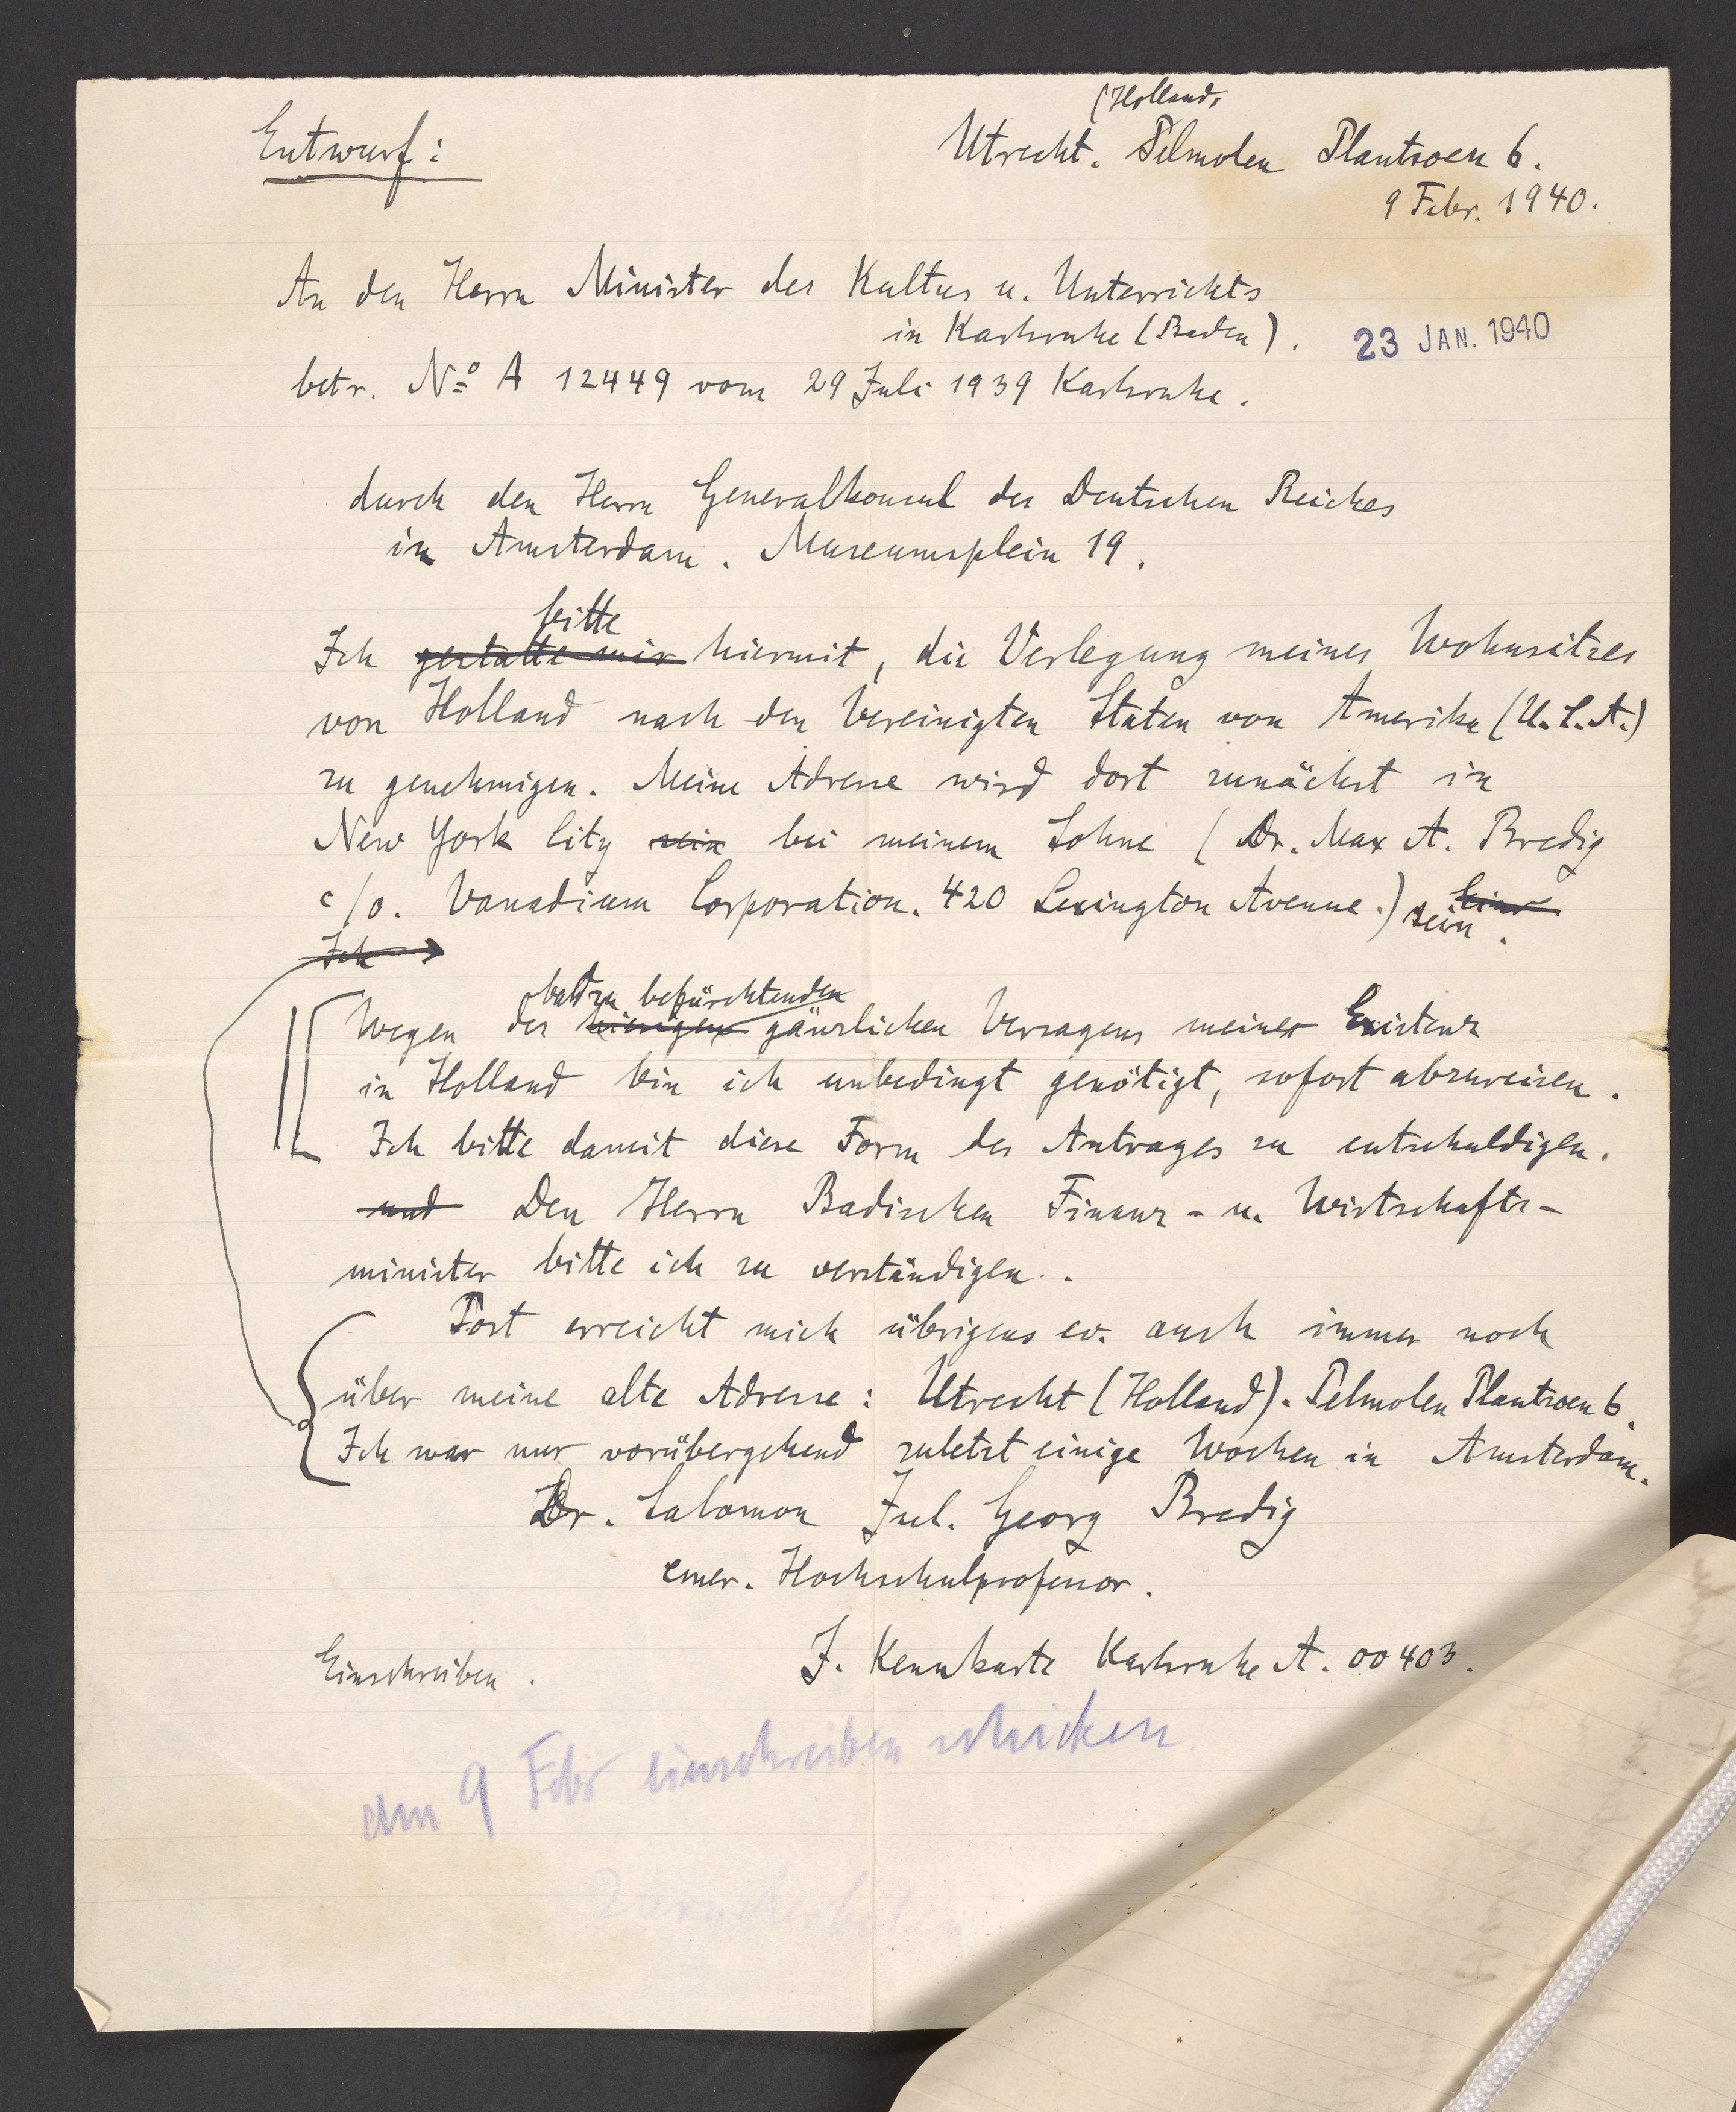 (Holland,
Entwurf: Utrecht. Pelmolen Plantsoen 6.
9 Febr. 1940.
An den Herrn Minister des Kultus u. Unterrichts
in Karlsruhe (Baden). 23 JAN. 1940
betr. No A 12449 vom 29 Juli 1939 Karlsruhe.
durch den Herrn Generalkonsul des Deutschen Reiches
in Amsterdam. Museumsplein 19.
bitte
Ich gestatte mir hiermit, die Verlegung meines Wohnsitzes
von Holland nach den Vereinigten Staten von Amerika (U.S.A.)
zu genehmigen. Meine Adresse wird dort zunächst in
New York City sein bei meinem Sohne (Dr. Max A. Bredig
c/o. Vanadium Corporation. 420 Lexington Avenue.) sein.
Ich
bald zu befürchtenden
Wegen des hiesigen gänzlichen Versagens meiner Existenz
in Holland bin ich unbedingt genötigt, sofort abzureisen.
Ich bitte damit diese Form des Antrages zu entschuldigen.
und Den Herrn Badischen Finanz- u. Wirtschafts-
minister bitte ich zu verständigen.
Post erreicht mich übrigens ev. auch immer noch
über meine alte Adresse: Utrecht (Holland). Pelmolen Plantsoen 6.
Ich war nur vorübergehend zuletzt einige Wochen in Amsterdam.
Dr. Salomon Jul. Georg Bredig
emer. Hochschulprofessor.
Einschreiben. J. Kennkarte Karlsruhe A. 00403.
am 9 Febr einschreiben schicken